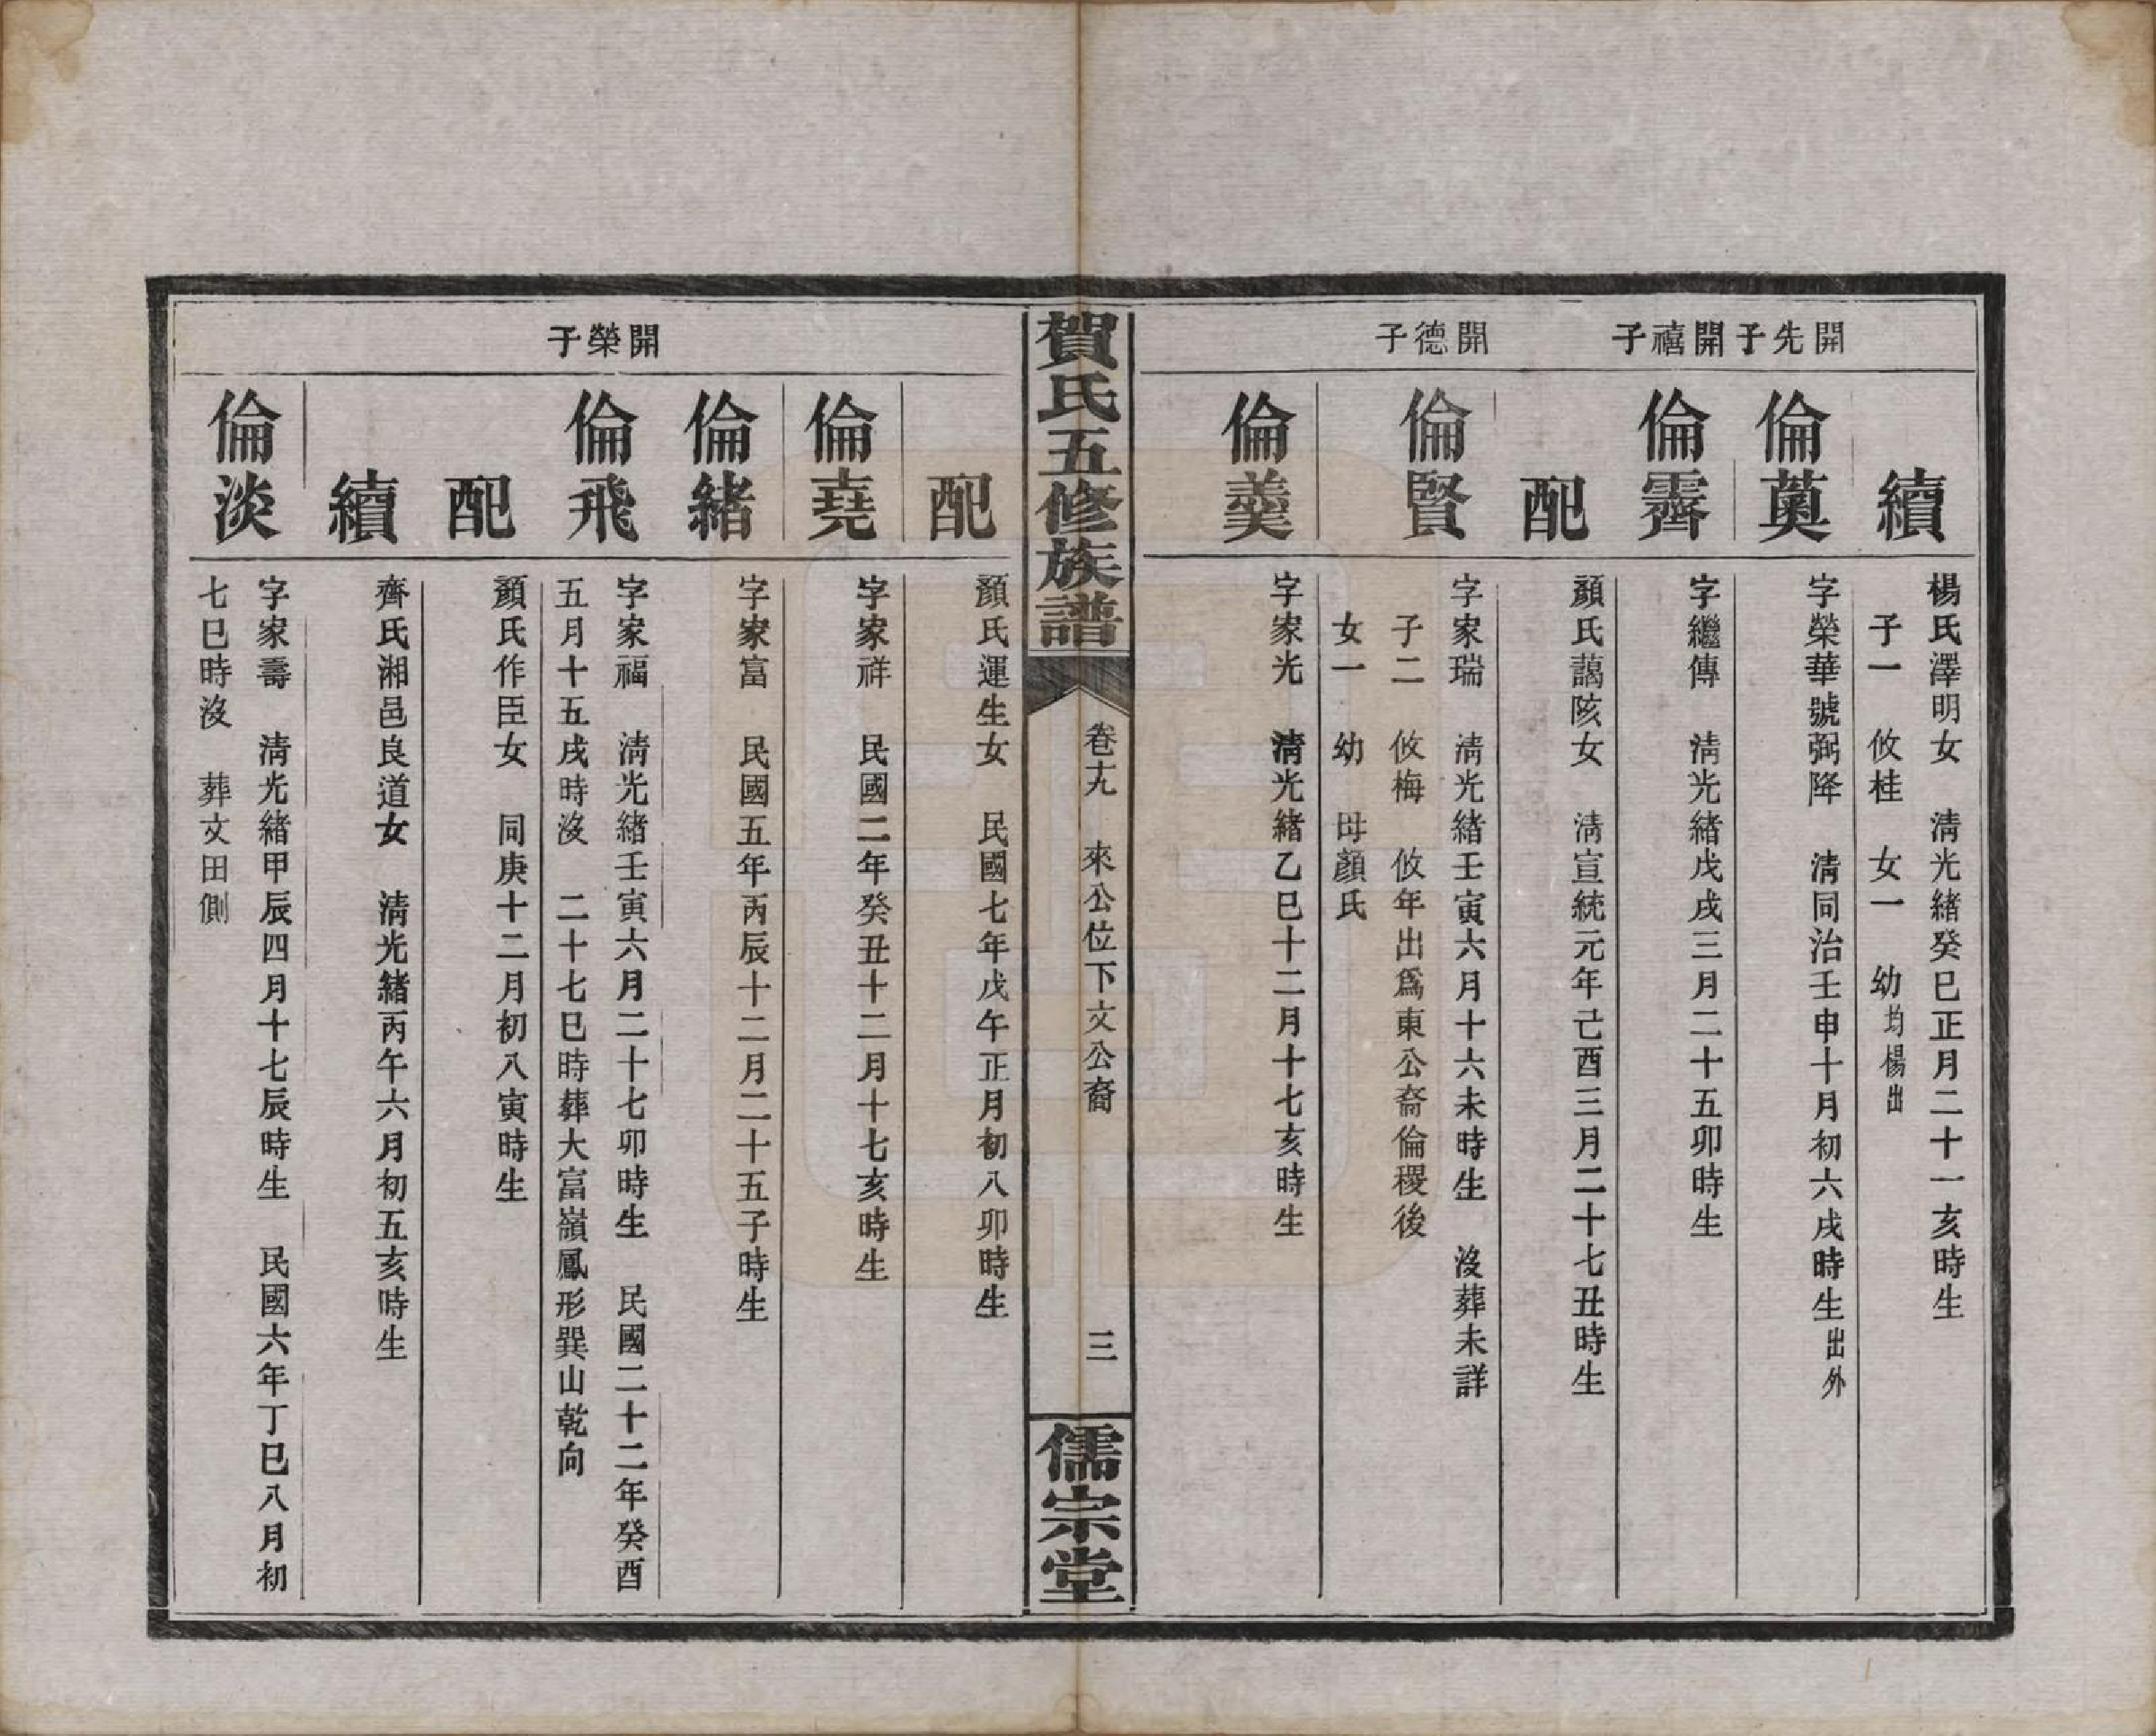 續
楊氏澤明女　清光緒癸巳正月二十一亥時生
子一　攸桂　女一　幼均楊出
開先子
倫薁
字榮華號弼降　清同治壬申十月初六戌時生出外
開禧子
倫霽
字繼傳　清光緒戊戌三月二十五卯時生
配
顏氏藹陔女　清宣統元年己酉三月二十七丑時生
開德子
倫賢
字家瑞　清光緒壬寅六月十六未時生　沒葬未詳
子二　攸梅　攸年出爲東公裔倫稷後
女一　幼　母顏氏
倫羹
字家光　清光緒乙巳十二月十七亥時生
賀氏五修族譜
卷十九　來公位下文公裔
三
儒宗堂
配
顏氏運生女　民國七年戊午正月初八卯時生
倫堯
字家祥　民國二年癸丑十二月十七亥時生
倫緒
字家富　民國五年丙辰十二月二十五子時生
開榮子
倫飛
字家福　清光緒壬寅六月二十七卯時生　民國二十二年癸酉
五月十五戌時沒　二十七巳時葬大富嶺鳳形巽山乾向
配
顏氏作臣女　同庚十二月初八寅時生
續
齊氏湘邑良道女　清光緒丙午六月初五亥時生
倫淡
字家壽　清光緒甲辰四月十七辰時生　民國六年丁巳八月初
七巳時沒　葬文田側